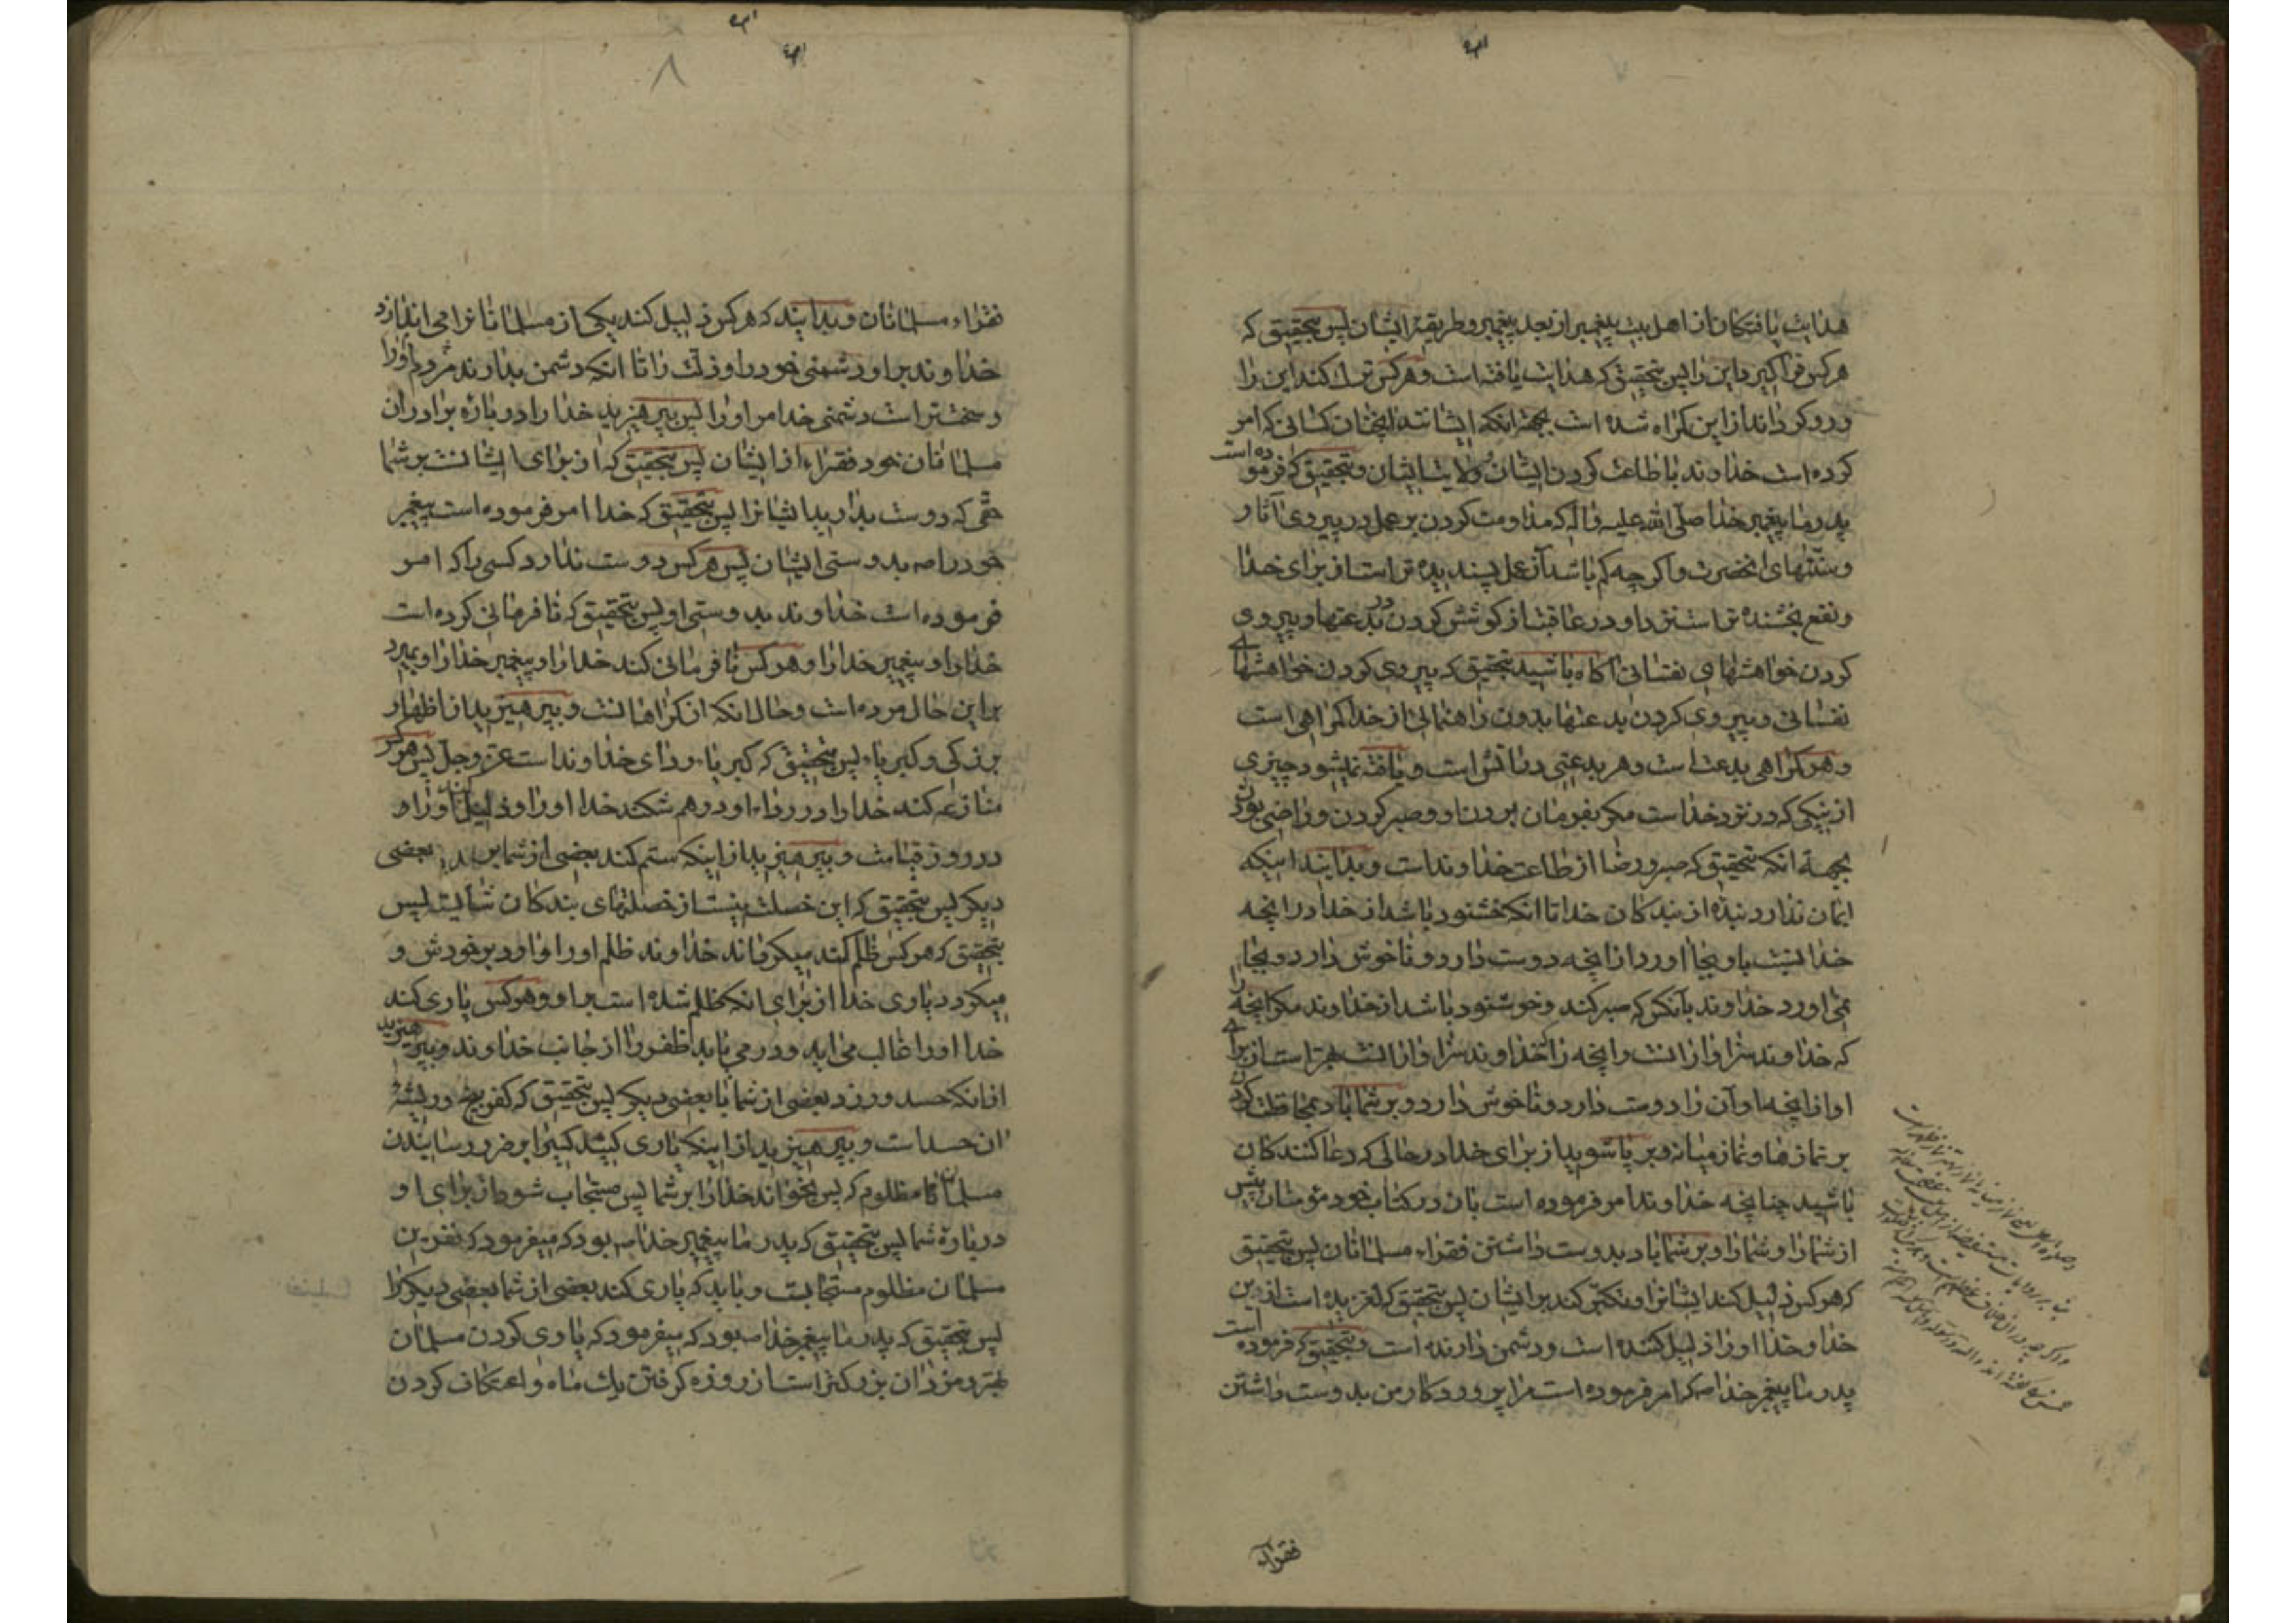 هدایت یافتکان از اهل بیت پیغمبر از بعد پیغمبر و طریقهٔ ایشان پس بتحقیق که
هر کس فراکیرد این را پس بتحقیق که هدایت یافته است و هر کس ترك کند این را
و رو کرداند از این کمراه شده است بجهة انکه ایشانند انچنان کسانی که امر
کرده است خداوند باطاعت کردن ایشان و ولایت ایشان و بتحقیق که فرموده است
پدر ما پیغمبر خدا صلّی الله علیه و اله که مداومت کردن بر عمل در پیروی آثار
و سنّتهای انحضرت و اکر چه کم باشد آن عمل پسندیده تر است از برای خدا
و نفع بخشنده تر است نزد او در عاقبت از کوشش کردن در بدعتها و پیروی
کردن خواهشهای نفسانی آکاه باشید بتحقیق که پیروی کردن خواهشهای
نفسانی و پیروی کردن بدعتها بدون راهنمائی از خدا کمراهی است
و هر کمراهی بدعت است و هر بدعتی در آتش است و یافته نمیشود چیزی
از نیکی که در نزد خداست مکر بفرمان بردن او و صبر کردن و راضی بودن
بجهة انکه بتحقیق که صبر و رضا از طاعت خداوند است و بدانید اینکه
ایمان ندارد بندهٔ از بندکان خدا تا انکه خشنود باشد از خدا در انچه
خدا نسبت باو بجا اورد از انچه دوست دارد و ناخوش دارد و بجا
نمی اورد خداوند بآنکس که صبر کند و خوشنود باشد از خداوند مکر انچه را
که خداوند سزاوار انست و انچه را که خداوند سزاوار انست بهتر است از برای
او از انچه او آن را دوست دارد و ناخوش دارد و بر شما باد بمحافظت کردن
بر نمازها و نماز میانه و بر پا شوید از برای خدا در حالی که دعا کنندکان
باشید چنانچه خداوند امر فرموده است بان در کتاب خود مؤمنان پیش
از شما را و شما را و بر شما باد بدوست داشتن فقراء مسلمانان پس بتحقیق
که هر کس ذلیل کند ایشانرا و تکبّر کند بر ایشان پس بتحقیق که لغزیده است از دین
خدا و خدا او را ذلیل کننده است و دشمن دارنده است و بتحقیق که فرموده است
پدر ما پیغمبر خدا صم که امر فرموده است مرا پروردکار من بدوست داشتن
فقراء
۸
فقراء مسلمانان و بدانید که هر کس ذلیل کند یکی از مسلمانانرا می اندازد
خداوند بر او دشمنی خود را و ذلّت را تا انکه دشمن بدارند مردم او را
و سخت تر است دشمنی خدا مر او را پس بپرهیزید خدا را در بارهٔ برادران
مسلمانان خود فقراء از ایشان پس بتحقیق که از برای ایشانست بر شما
حقّی که دوست بدارید ایشانرا پس بتحقیق که خدا امر فرموده است پیغمبر
خود را صم بدوستی ایشان پس هر کس دوست ندارد کسی را که امر
فرموده است خداوند بدوستی او پس بتحقیق که نافرمانی کرده است
خدا را و پیغمبر خدا را و هر کس نافرمانی کند خدا را و پیغمبر خدا را و بمیرد
بر این حال مرده است و حال انکه از کمراهانست و بپرهیزید از اظهار
بزرکی و کبریاء پس بتحقیق که کبریاء ردای خداوند است عزّ و جلّ پس هر کس
منازعه کند خدا را در رداء او در هم شکند خدا او را و ذلیل کند او را
در روز قیامت و بپرهیزید از اینکه ستم کند بعضی از شما بر بعضی
دیکر پس بتحقیق که این خصلت نیست از خصلتهای بندکان شایسته پس
بتحقیق که هر کس ظلم کند میکرداند خداوند ظلم او را وارد بر خودش و
میکردد یاری خدا از برای انکه ظلم شده است بر او و هر کس یاری کند
خدا او را غالب می اید و در می یابد ظفر را از جانب خداوند و بپرهیزید
از انکه حسد ورزد بعضی از شما با بعضی دیکر پس بتحقیق که کفر بیخ و ریشهٔ
ان حسد است و بپرهیزید از اینکه یاری کنید کسیرا بر ضرر رسانیدن
مسلمانان مظلوم که پس بخواند خدا را بر شما پس مستجاب شود از برای او
در بارهٔ شما پس بتحقیق که پدر ما پیغمبر خدا صم بود که میفرمود که نفرین
مسلمان مظلوم مستجابست و باید که یاری کند بعضی از شما بعضی دیکر را
پس بتحقیق که پدر ما پیغمبر خدا صم بود که میفرمود که یاری کردن مسلمان
بهتر و مزد ان بزرکتر است از روزه کرفتن یك ماه و اعتکاف کردن